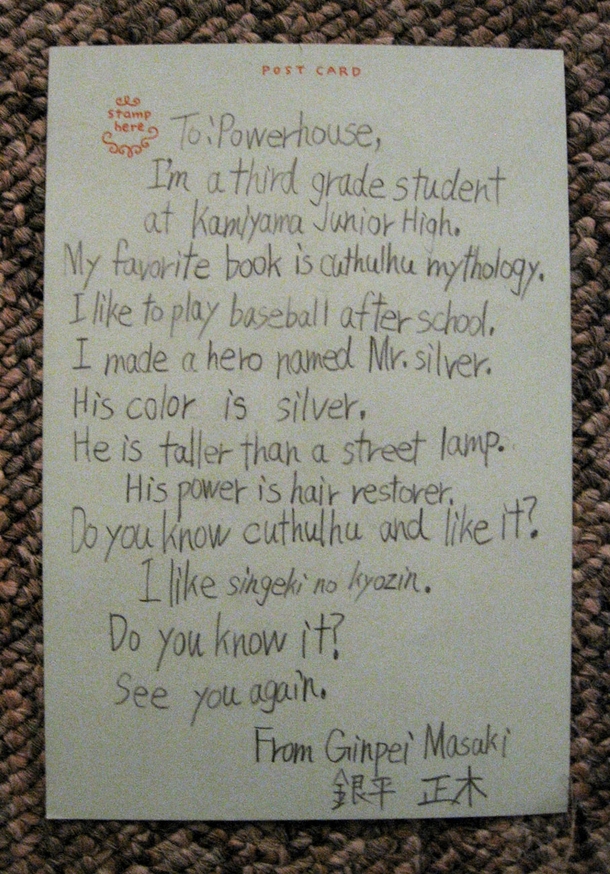 POST CARD
stamp
here
To: Powerhouse,
I'm a third grade student
at Kamiyama Junior High.
My favorite book is cuthulhu mythology.
I like to play baseball after school.
I made a hero named Mr. silver.
His color is silver.
He is taller than a street lamp.
His power is hair restorer.
Do you know cuthulhu and like it?
I like singeki no kyozin.
Do you know it?
See you again.
From Ginpei Masaki
銀平 正木